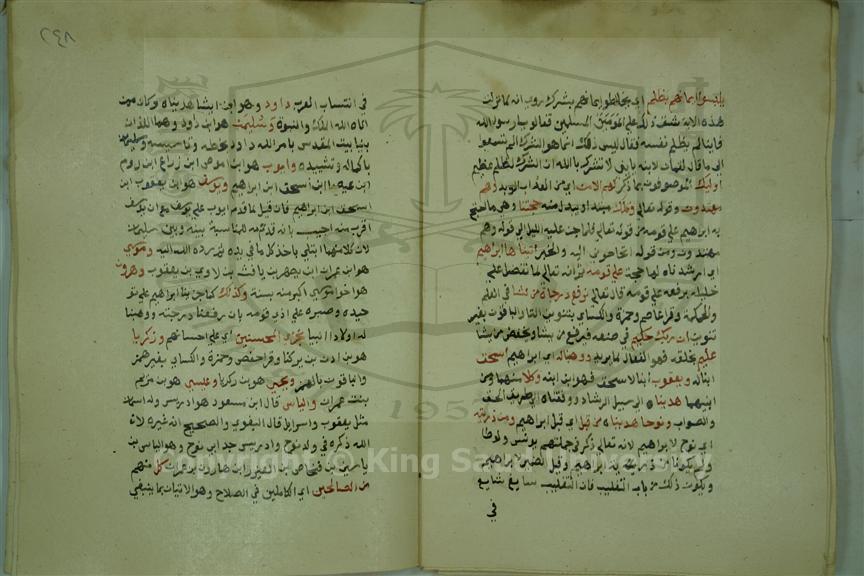 يلبسوا ايمانهم بظلم اي يخلطوا ايمانهم بشرك روي انه لما نزلت
هذه الاية شق ذلك على المسلمين فقالوا يا رسول الله
فاينا لم يظلم نفسه فقال ليس ذلك انما هو الشرك الم تسمعوا
الى ما قال لقمان لابنه يا بني لا تشرك بالله ان الشرك لظلم عظيم
اوليك الموصوفون بما ذكر لهم الامن اي من العذاب الموبد وهم
مهتدون وقوله تعالى وتلك مبتدا ويبدل منه حجتنا وهي ما احتج
به ابراهيم على قومه من قوله تعالى فلما جن عليه الليل الى قوله وهم
مهتدون ومن قوله اتحاجوني اليه والخبر اتيناها ابراهيم
اي ارشدناه لها حجة على قومه ثم انه تعالى لما تفضل على
خليله برفعه على قومه قال تعالى نرفع درجات من نشا في العلم
والحكمة وقرا عاصم وحمزة والكساي بتنوين التا والباقون بغير
تنوين ان ربك حكيم في صنعه فيرفع من يشا ويخفض من يشا
عليم بخلقه فهو الفعال لما يريد ووهبنا له اي ابراهيم اسحق
ابنا له ويعقوب ابنا لاسحق فهو ابن ابنه وكلا منهما ومن
ابنيهما هدينا اي سبيل الرشاد ووفقناه الى طريق الحق
والصواب ونوحا هديناه من قبل اي قبل ابراهيم ومن ذريته
اي نوح لا ابراهيم لانه تعالى ذكر في جملتهم يونس ولوطا
ولم يكونا من ذرية ابراهيم وقيل الضمير لابراهيم
ويكون ذلك من باب التغليب فان التغليب سايغ شايع
في
٢٤٨
في انتساب العرب داود وهو ابن ايشا هديناه وكان ممن
اتاه الله الملك والنبوة وسليمن هو ابن داود وهما اللذان
بنيا بيت المقدس بامر الله داود بخطه وتاسيسه وسليمن
باكماله وتشييده وايوب هو ابن اموص ابن رزاع ابن روم
ابن عيص ابن اسحق ابن ابراهيم ويوسف هو ابن يعقوب ابن
اسحق ابن ابراهيم فان قيل لم قدم ايوب على يوسف مع ان يوسف
اقرب منه اجيب بانه قدمه للمناسبة بينه وبين سليمن
لان كلا منهما ابتلي باخذ كل ما في يده ثم رده الله اليه وموسى
هو ابن عمران ابن يصهر بن قاهث بن لاوي بن يعقوب وهرون
هو اخو موسى اكبر منه بسنة وكذلك كما جزينا ابراهيم على تو
حيده وصبره على اذى قومه بان رفعنا درجته ووهبنا
له اولادا انبيا نجزي المحسنين اي على احسانهم وزكريا
هو بن ادن بن بركيا وقرا حفص وحمزة والكساي بغير همز
والباقون بالهمز ويحيى هو بن زكريا وعيسى هو بن مريم
بنت عمران والياس قال ابن مسعود هو ادريس وله اسمان
مثل يعقوب واسرايل قال البغوي والصحيح انه غيره لان
الله ذكره في ولد نوح وادريس جد ابي نوح وهو الياس بن
ياسين بن فنحاص بن العيزار ابن هارون بن عمران كل منهم
من الصالحين اي الكاملين في الصلاح وهو الاتيان بما ينبغي
Copyright © King Saud University
1957